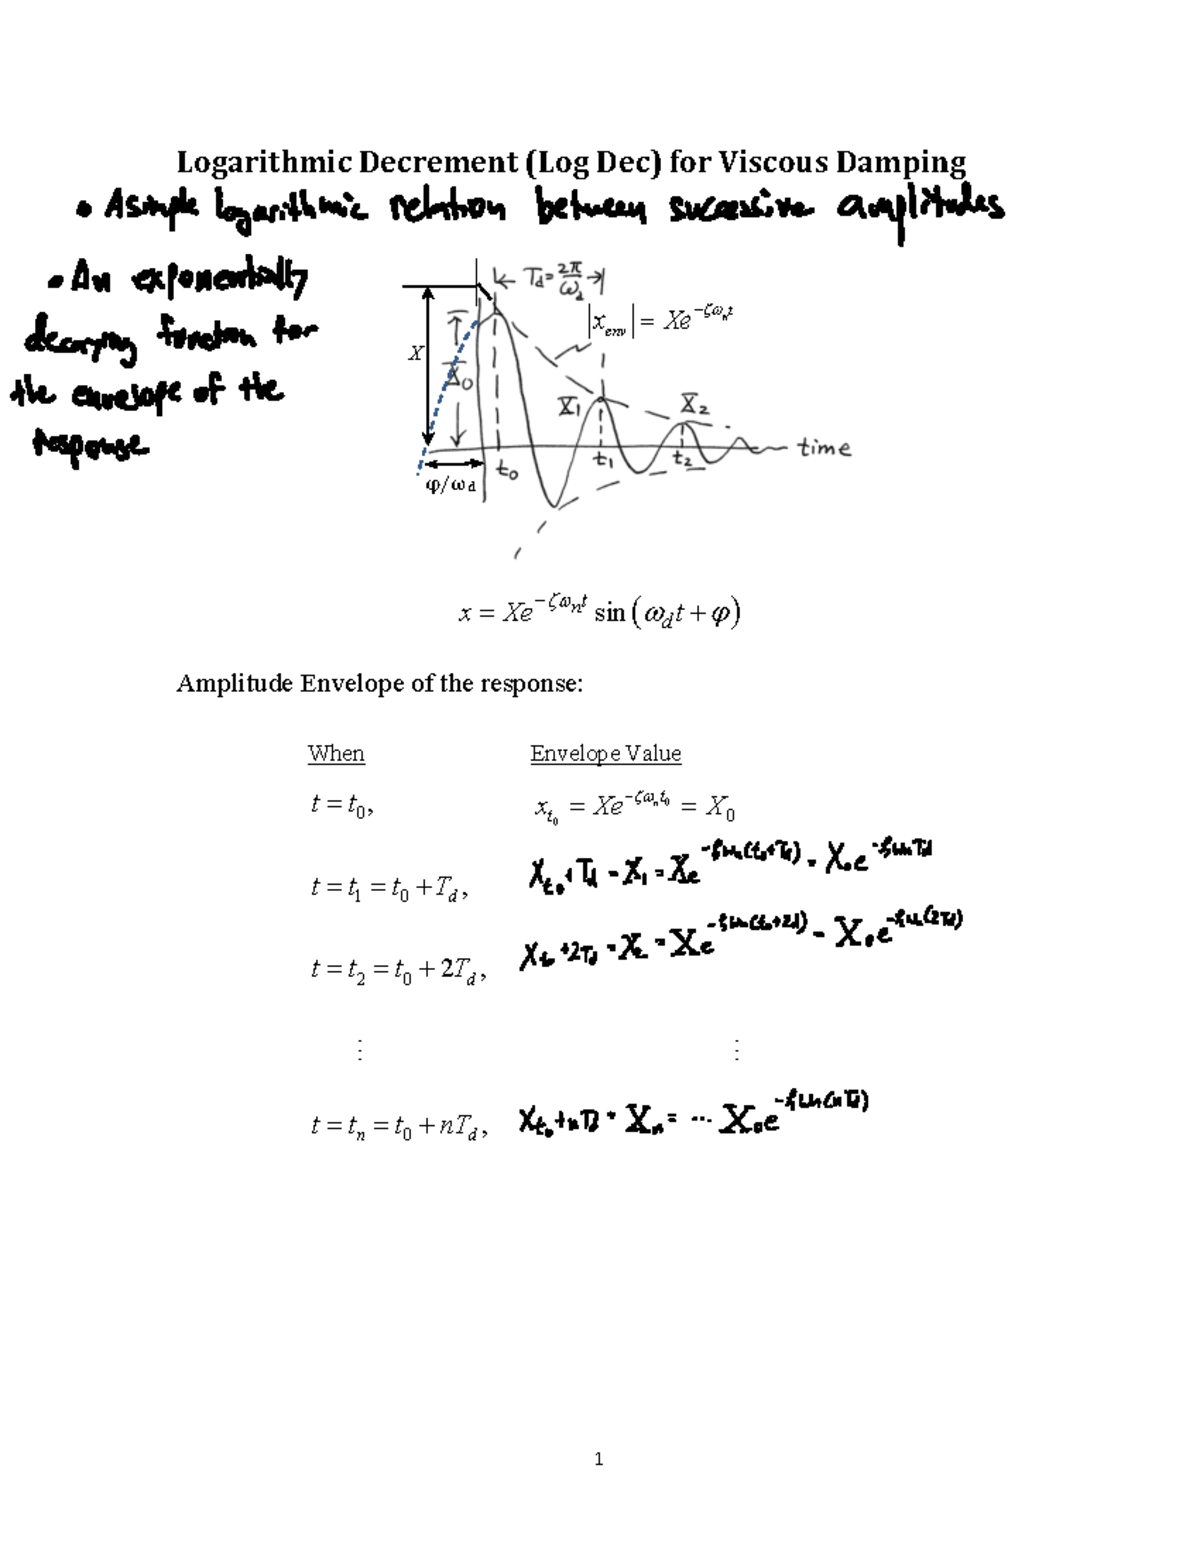 Logarithmic Decrement (Log Dec) for Viscous Damping
• A simple logarithmic relation between successive amplitudes
• An exponentially
decaying function for
the envelope of the
response
T_d = 2π/ω_d
|x_env| = Xe^{-ζω_n t}
X
X_0
X_1
X_2
t_0
t_1
t_2
time
φ/ω_d
x = Xe^{-ζω_n t} sin(ω_d t + φ)
Amplitude Envelope of the response:
When Envelope Value
t = t_0, x_{t_0} = Xe^{-ζω_n t_0} = X_0
t = t_1 = t_0 + T_d, X_{t_0+T_d} = X_1 = Xe^{-ζω_n(t_0+T_d)} = X_0 e^{-ζω_n T_d}
t = t_2 = t_0 + 2T_d, X_{t_0+2T_d} = X_2 = Xe^{-ζω_n(t_0+2d)} = X_0 e^{-ζω_n(2T_d)}
⋮ ⋮
t = t_n = t_0 + nT_d, X_{t_0+nT_d} = X_n = ... X_0 e^{-ζω_n(nT_d)}
1